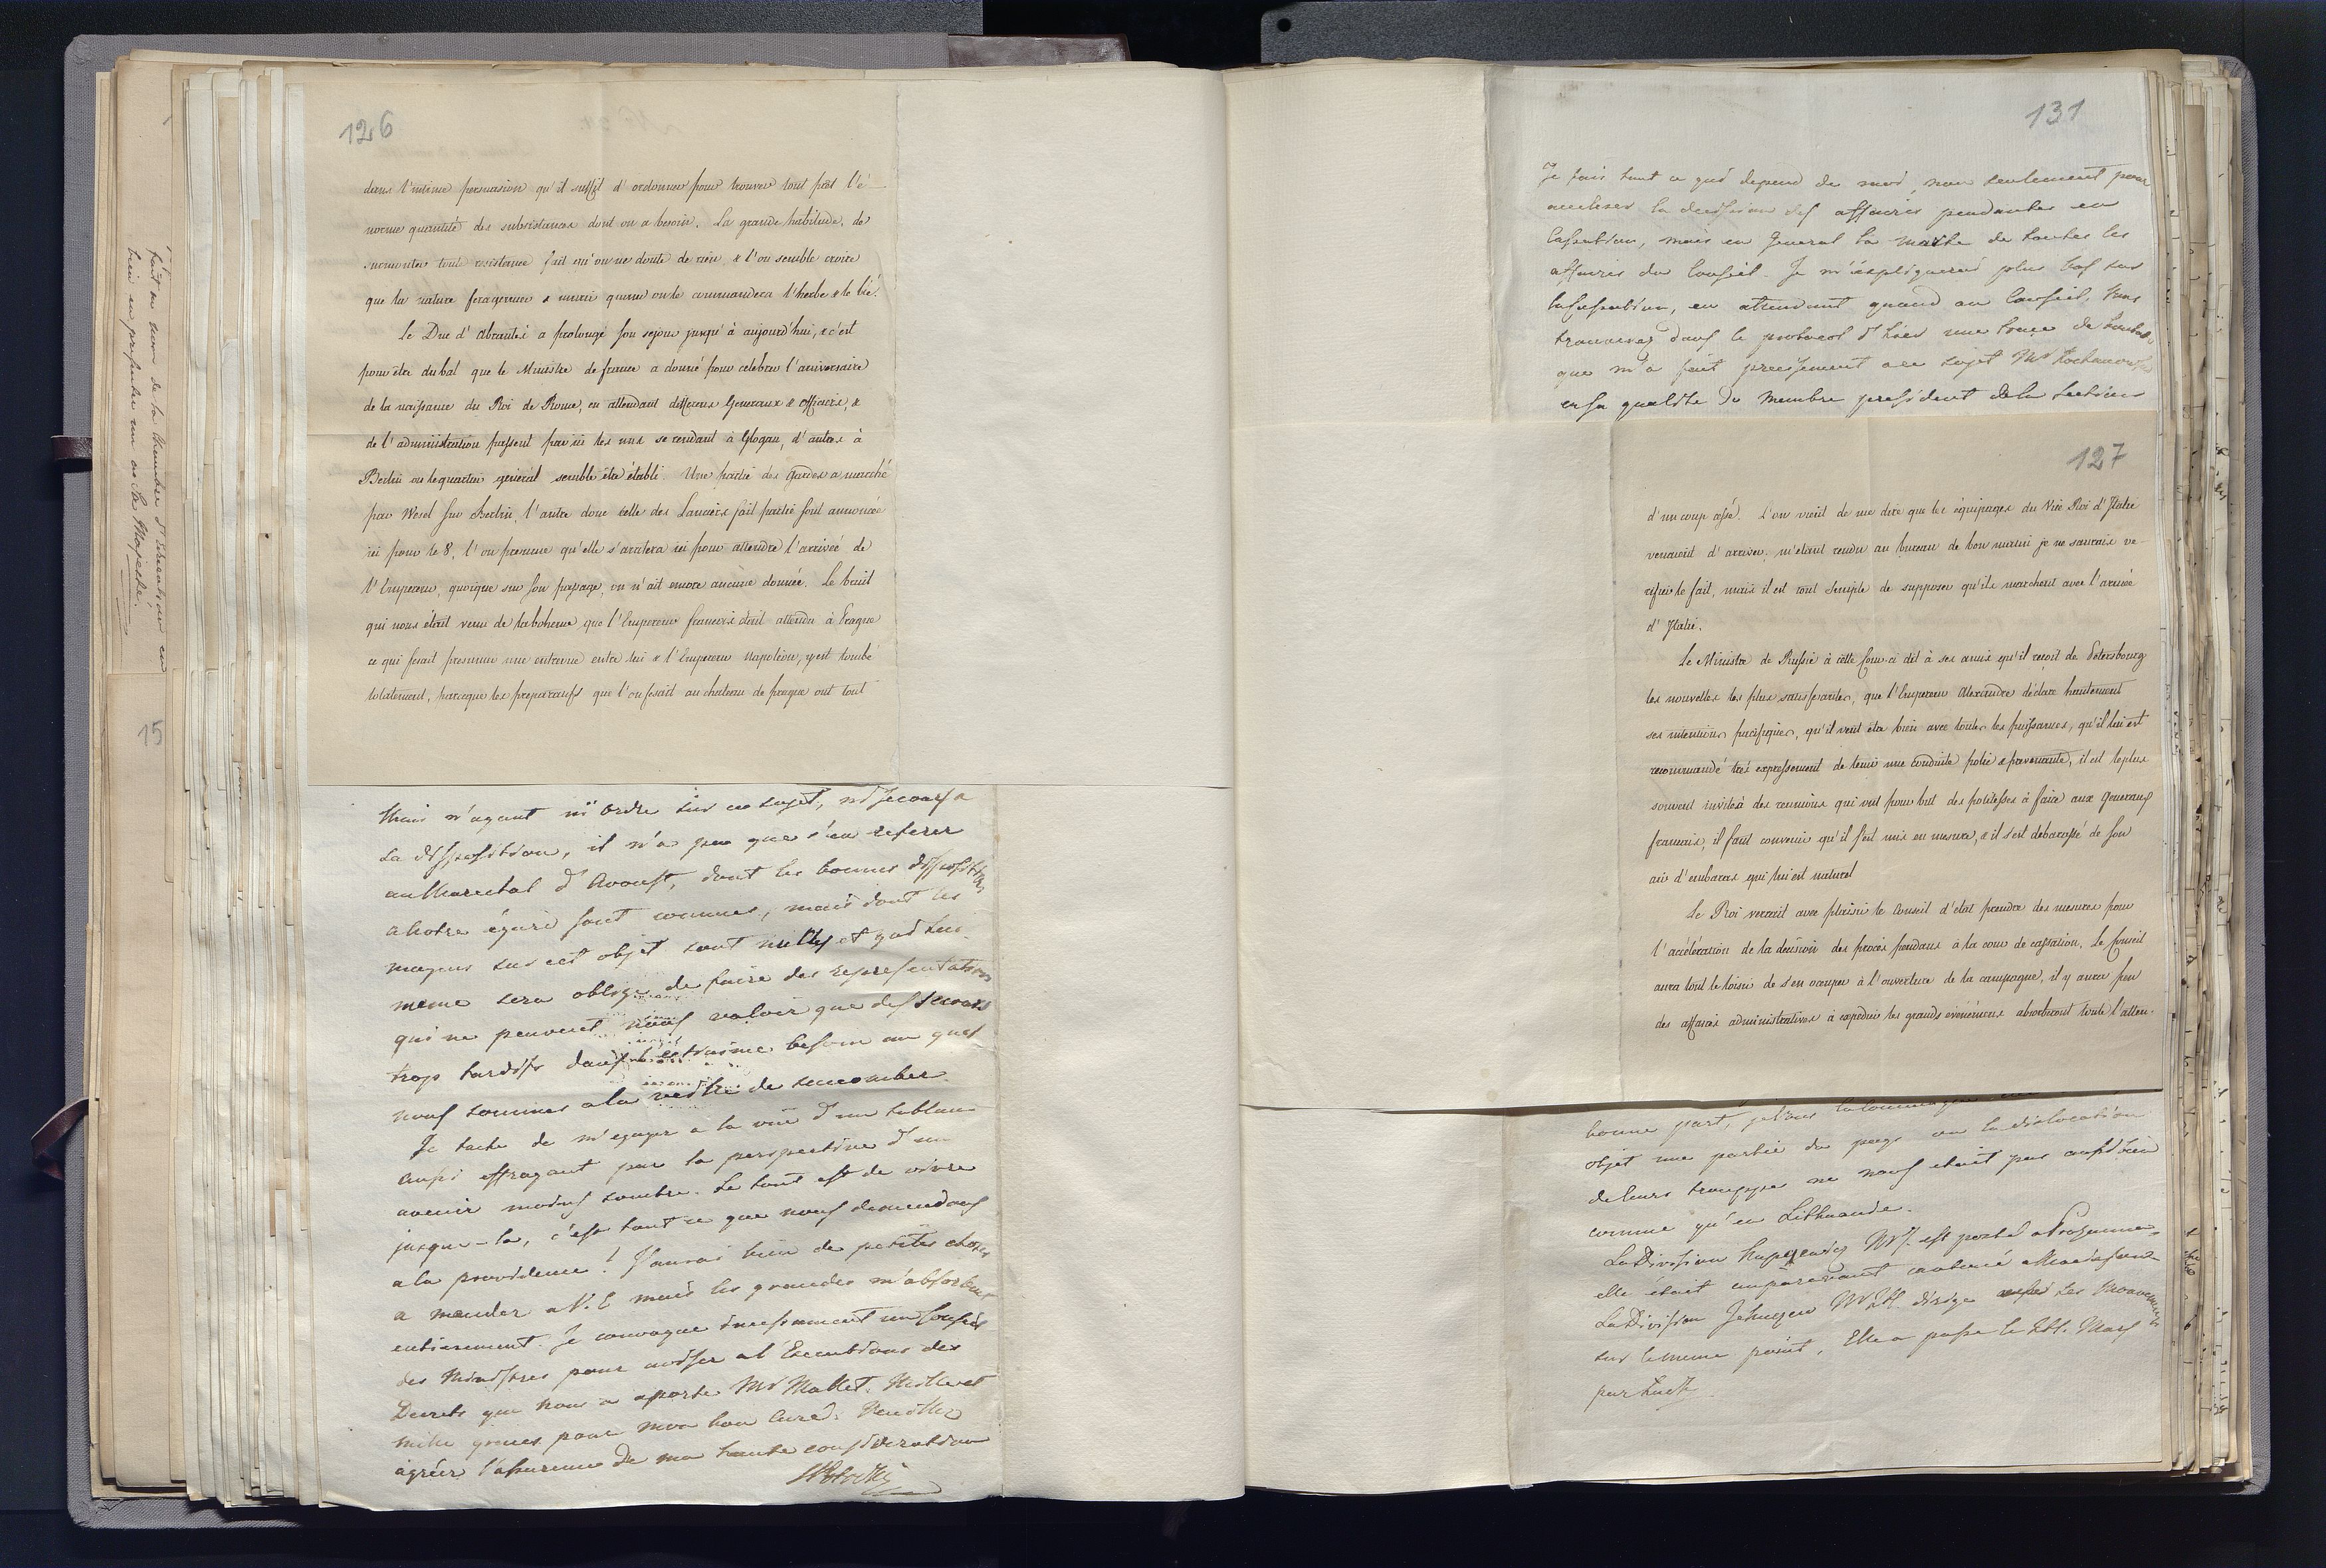 126
dans l'intime persuasion qu'il suffit d'ordonner pour trouver tout prêt l'é-
norme quantité des subsistances dont on a besoin. La grande habitude, de
surmonter tout resistance fait qu'on ne doute de rien, & l'on semble croire
que la nature fera germer & murir quand on le commandera l'herbe & le blé.
Le Duc d'Abrantés a prolongé son sejour jusqu'à aujourd'hui, & c'est
pour être du bal que le Ministre de france a donné pour celebrer l'aniversaire
de la naissance du Roi de Rome, en attendant differens Generaux & Officiers, &
de l'administration passent par ici les uns se rendant à Glogau, d'autres à
Berlin ou le quartier général semble être établi. Une partie des Gardes a marché
par Wesel sur Berlin, l'autre dont celle des Lanciers fait partie sont annoncée
ici pour le 8, l'on presume qu'elle s'arretera ici pour attendre l'arrivée de
l'Empereur, quoique sur son passage, on n'ait encore aucune donnée. Le bruit
qui nous était venu de la boheme que l'Empereur francois était attendu à Prague
ce qui ferait presumer une entrevue entre lui & l'Empereur Napoléon, y est tombé
totalement, parceque les preparatifs que l'on fesait au chateau de prague ont tout
Mais n'ayant ni ordre sur ce sujet, ni secours a
sa disposition, il n'a pu que s'en referer
au Marechal d'Avoust, dont les bonnes dispositions
a notre égard sont connues, mais dont les
moyens sur cet objet sont nuls, et qui lui
meme sera obligé de faire des representations
qui ne peuvent nous valoir que des secours
trop tardifs dans l'extreme besoin au quel
nous sommes a la veille de succomber.
Je tache de m'egayer a la vue d'un tableau
aussi effrayant par la perspective d'un
avenir moins sombre. Le tout est de vivre
jusque-la, c'est tout ce que nous demandons
a la providence! J'aurai bien de petites choses
a mander a V. E mais les grandes m'absorbent
entierement. Je convoque incessamment un Conseil
des Ministres pour aviser a l'Execution des
Decrets que nous a aporté Mr Mallet. Mille et
mille graces pour mon bon Curé. Veuillez
agréer l'assurance de ma haute consideration
SPotocki
fait au nom de la Chambre d'Education en
bien en presenter un a Sa Majesté.
15
131
Je fais tout ce qui depend de moi, non seulement pour
accelerer la decission des affaires pendantes en
Cassation, mais en general la marche de toutes les
affaires du Conseil. Je m'expliquerai plus bas sur
la Cassation, en attendant quand au Conseil, Vous
trouverez dans le protocol d'hier une
que m'a fait precisement a ce sujet Mr Kochanowski
en sa qualité de Membre president de la Section
127
d'un coup cessé. L'on vient de me dire que les équipages du Vice Roi d'Italie
venaient d'arriver, m'étant rendu au bureau de bon matin je ne saurais ve-
rifier le fait, mais il est tout simple de supposer qu'ils marchent avec l'armée
d'Italie.
Le Ministre de Russie à cette Cour-ci dit à ses amis qu'il recoit de Petersbourg
les nouvelles les plus satisfesantes, que l'Empereur Alexandre déclare hautement
ses intentions pacifiques, qu'il veut être bien avec toutes les puissances, qu'il lui est
recommandé trés expressement de tenir une conduite polie & prevenante, il est le plus
souvent invité à des reunions qui ont pour but des politesses à faire aux Generaux
francais, il faut convenir qu'il s'est mis en mesure, & il s'est debarassé de son
air d'embaras qui lui est naturel
Le Roi verrait avec plaisir le Conseil d'état prendre des mesures pour
l'accélération de la decision des procès pendans à la cour de cassation. Le Conseil
aura tout le loisir de s'en occuper à l'ouverture de la campagne, il y aura peu
des affaires administratives à expedier les grands evénémens absorberont toute l'atten-
bonne part,
objet une partie du pays ou la dislocation
de leurs trouppes ne nous etait pas aussi bien
connue qu'en Lithuanie.
La Division
elle était auparavant
La Division dirige ses Mouvements
sur le meme point, Elle a passé le Mars
par Luck.